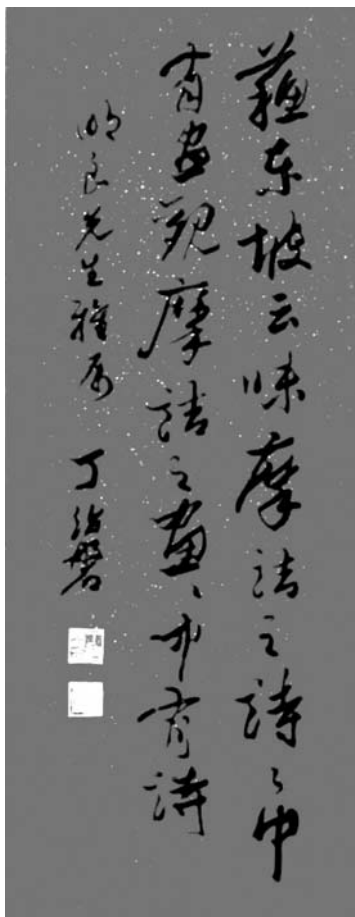 蘇東坡云味摩詰之詩〻中
有畫觀摩詰之畫〻中有詩
明良先生雅屬 丁治磐